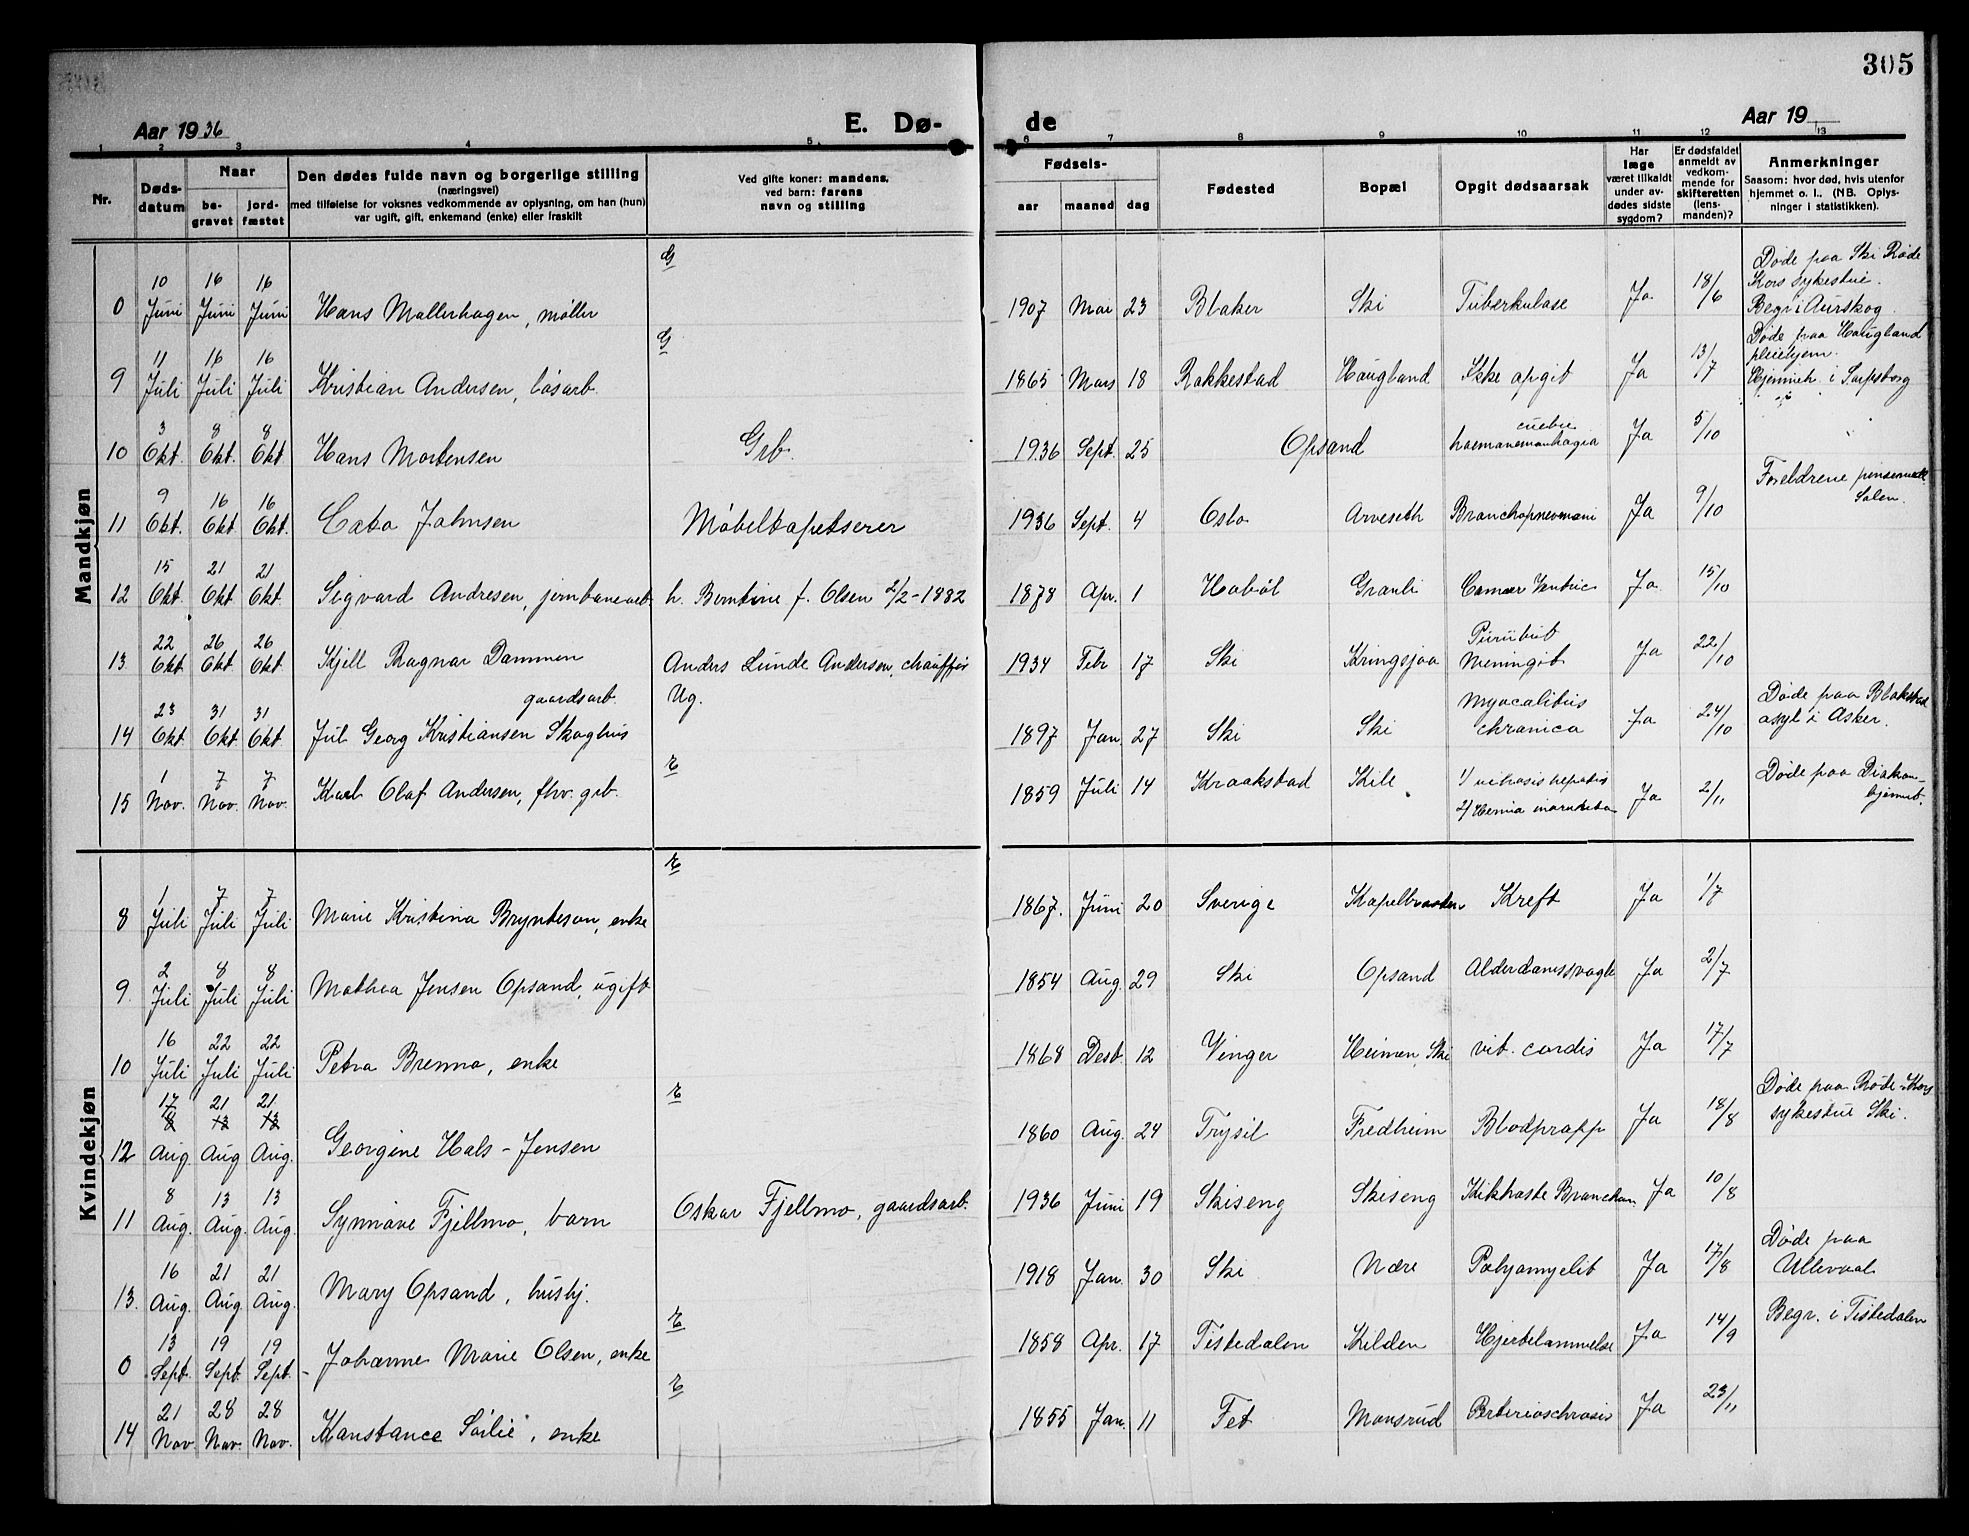 305
Aar 1936 E. Dø- de Aar 19
1 2 3 4 5 6 7 8 9 10 11 12 13
Nr.
Døds-
datum
Naar
be-
gravet
jord-
fæstet
Den dødes fulde navn og borgerlige stilling
(næringsvei)
med tilføielse for voksnes vedkommende av oplysning, om han (hun)
var ugift, gift, enkemand (enke) eller fraskilt
Ved gifte koner: mandens,
ved barn: farens
navn og stilling
Fødsels-
aar maaned dag
Fødested
Bopæl
Opgit dødsaarsak
Har
læge
været tilkaldt
under av-
dødes sidste
sygdom?
Er dødsfaldet
anmeldt av
vedkom-
mende for
skifteretten
(lens-
manden)?
Anmerkninger
Saasom: hvor død, hvis utenfor
hjemmet o. l.. (NB. Oplys-
ninger i statistikken).
Mandkjøn
G
10 16 16
0 Juni Juni Juni Hans Mallerhagen, møller 1907 Mai 23 Blaker Ski Tuberkulose Ja 18/6
Døde paa Ski Røde
Kors sykestue.
Begr. i Aurskog.
G
11 16 16
9 Juli Juli Juli Kristian Andersen, løsarb. 1865 Mars 18 Rakkestad Haugland Ikke opgit Ja 13/7
Døde paa Haugland
pleiehjem.
Hjemmeh. i Sarpsborg
3 8 8
10 Okt. Okt. Okt. Hans Mortensen Grb. 1936 Sept. 25 Opsand Ja 5/10
9 16 16
11 Okt. Okt. Okt. Cato Johnsen Møbeltapetserer 1936 Sept. 4 Oslo Arveseth Bronchopneumoni Ja 9/10
Foreldrene
15 21 21
12 Okt. Okt. Okt. Sigvard Andresen, jernbanearb. h. Berntine f. Olsen 2/2-1882 1878 Apr. 1 Hobøl Granli Cancer Ventric Ja 15/10
22 26 26
13 Okt. Okt. Okt. Kjell Ragnar Dammen Anders Lunde Andersen, chauffør 1934 Febr 17 Ski Kringsjaa Meningit Ja 22/10
Ug.
gaardsarb.
23 31 31
14 Okt. Okt. Okt. Jul Georg Kristiansen Skoghus 1897 Jan 27 Ski Ski chronica Ja 24/10
Døde paa Blakstad
asyl i Asker.
E
1 7 7
15 Nov. Nov. Nov. Karl Olaf Andersen, fhv. grb. 1859 Juli 14 Kraakstad Kile Ja 2/11
Døde paa Diakon-
hjemmet.
Kvindekjøn
E
1 7 7
8 Juli Juli Juli Marie Kristina Brynteson, enke 1867. Juni 20 Sverige Kreft Ja 1/7
2 8 8
9. Juli Juli Juli Mathea Jensen Opsand, ugift 1854 Aug. 29 Ski Opsand Ja 2/7
16 22 22
10 Juli Juli Juli Petra Brenna, enke 1868 Desb. 12 Vinger Heimen, Ski vit. cordis Ja 17/7
E
17 21 21
8 13 13
12 Aug. Aug Aug. Georgine Hals-Jensen 1860 Aug. 24 Trysil Fredheim Blodpropp Ja 18/8
Døde paa Røde-Kors
sykestue Ski.
8 13 13
11 Aug. Aug. Aug. Synnøve Fjellmo, barn Oskar Fjellmo, gaardsarb. 1936 Juni 19 Skiseng Skiseng Kikhoste Ja 10/8
16 21 21
13. Aug. Aug. Aug. Mary Opsand, husbj. 1918 Jan. 30 Ski Nære Polyomyelit Ja 17/8
Døde paa
Ullevaal
E
13 19 19
0 Sept. Sept. Sept. Johanne Marie Olsen, enke 1858 Apr. 17 Tistedalen Kilden Hjertelammelse Ja 14/9
Begr. i Tistedalen
E
21 28 28
14 Nov. Nov. Nov. Konstance Sørlie, enke 1855 Jan. 11 Fet Monsrud Ja 23/11